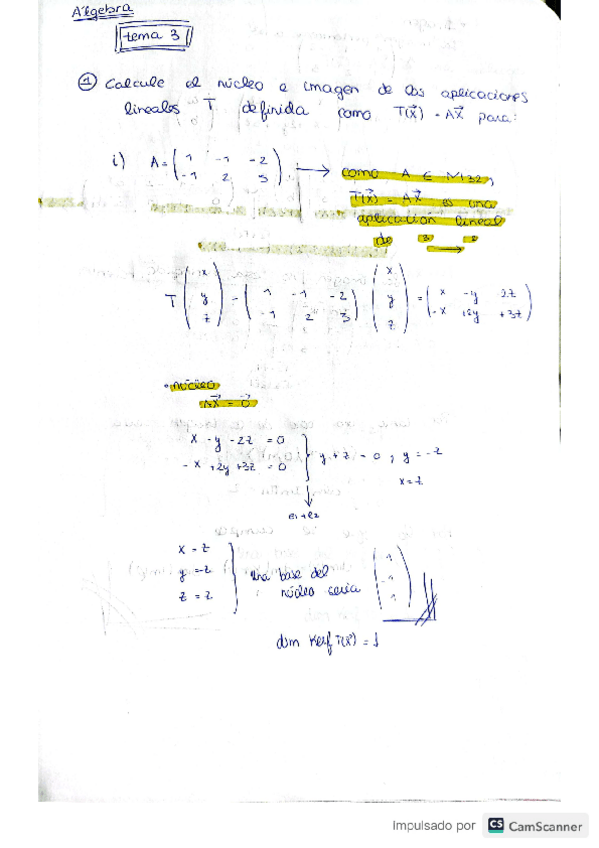 Álgebra
tema 3
① Calcule el núcleo e imagen de las aplicaciones
lineales T definida como T(x⃗) = Ax⃗ para:
i) A = ( 1 -1 -2
-1 2 3 ) → como A ∈ M32,
T(x⃗) = Ax⃗ es una
aplicación lineal
de
T ( x y z ) = ( 1 -1 -2
-1 2 3 ) ( x y z ) = ( x -y 2z
-x +2y +3z )
• núcleo
Ax⃗ = 0⃗
x - y - 2z = 0
- x + 2y + 3z = 0 } y + z = 0 ; y = -z
x = z
e1+e2
x = z
y = -z
z = z } Una base del
núcleo seria ( 1 -1 1 )
dim Kerf T(x⃗) = 1
Impulsado por CS CamScanner